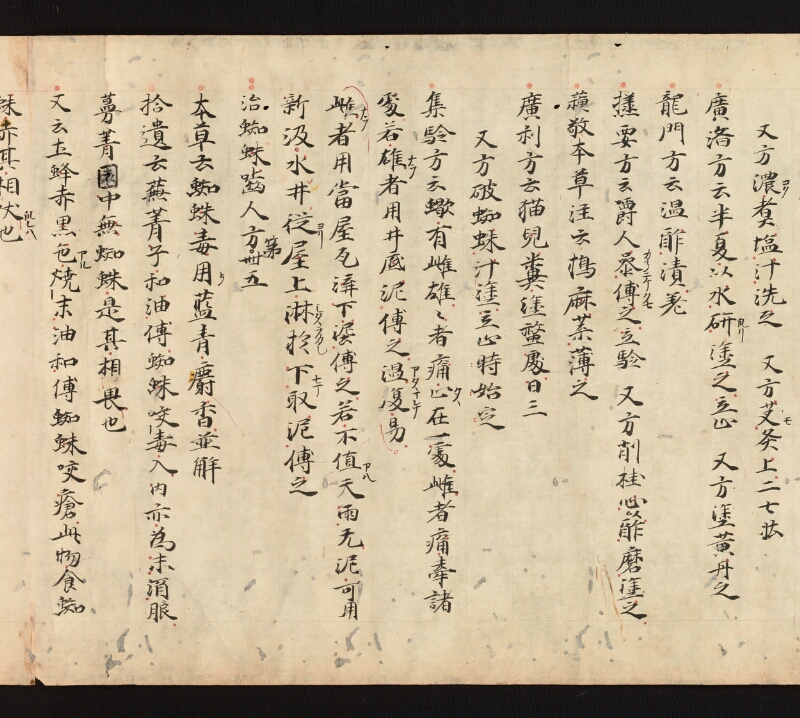 又方濃煮塩汁洗之 又方艾灸上二七壮
廣濟方云半夏以水研塗之立止 又方塗黄丹之
龍門方云温酢漬之
極要方云嚼人參傅之立驗 又方削桂心以酢磨塗之
蘓敬本草注云搗麻葉薄之
廣利方云猫兒糞塗螫處日三
又方破蜘蛛汁塗立止時始定
集驗方云蠍有雌雄〻者痛止在一處雌者痛牽諸
處若雄者用井底泥傅之温復易
雌者用當屋瓦溝下泥傅之若不值天雨无泥可用
新汲水井従屋上淋於下取泥傅之
治蜘蛛齧人方第卌五
本草云蜘蛛毒用藍青麝香並解
拾遺云蕪菁子和油傅蜘蛛咬毒入内亦為末消服
蔓菁園中無蜘蛛是其相畏也
又云土蜂赤黒色焼末油和傅蜘蛛咬瘡此物食蜘
蛛亦其相伏也